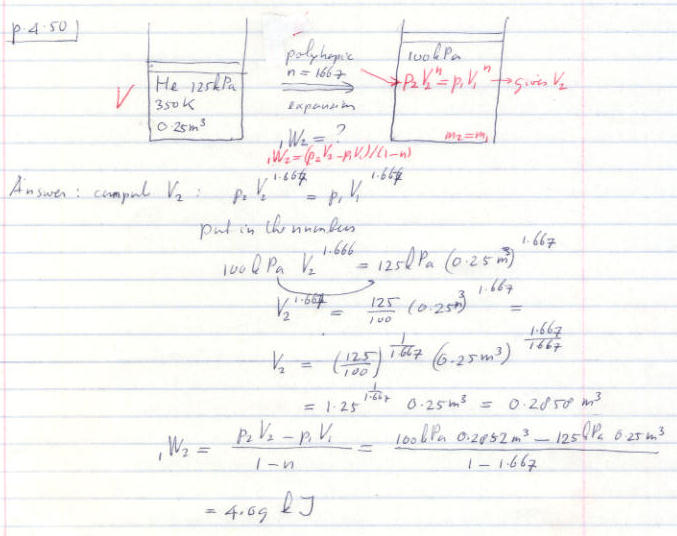 p.4.50
He 125kPa
350K
0.25m³
V
polytropic
n = 1667
expansion
₁W₂ = ?
₁W₂ = (p₂V₂ - p₁V₁)/(1-n)
100kPa
p₂V₂ⁿ = p₁V₁ⁿ → gives V₂
m₂ = m₁
Answer: comput V₂: p₂ V₂^1.667 = p₁ V₁^1.667
put in the numbers
100kPa V₂^1.666 = 125kPa (0.25m³)^1.667
V₂^1.667 = 125/100 (0.25m³)^1.667 =
V₂ = (125/100)^(1/1.667) (0.25m³)^(1.667/1.667)
= 1.25^(1/1.667) 0.25m³ = 0.2858 m³
₁W₂ = (p₂V₂ - p₁V₁)/(1-n) = (100kPa 0.2852m³ - 125kPa 0.25m³)/(1 - 1.667)
= 4.09 kJ